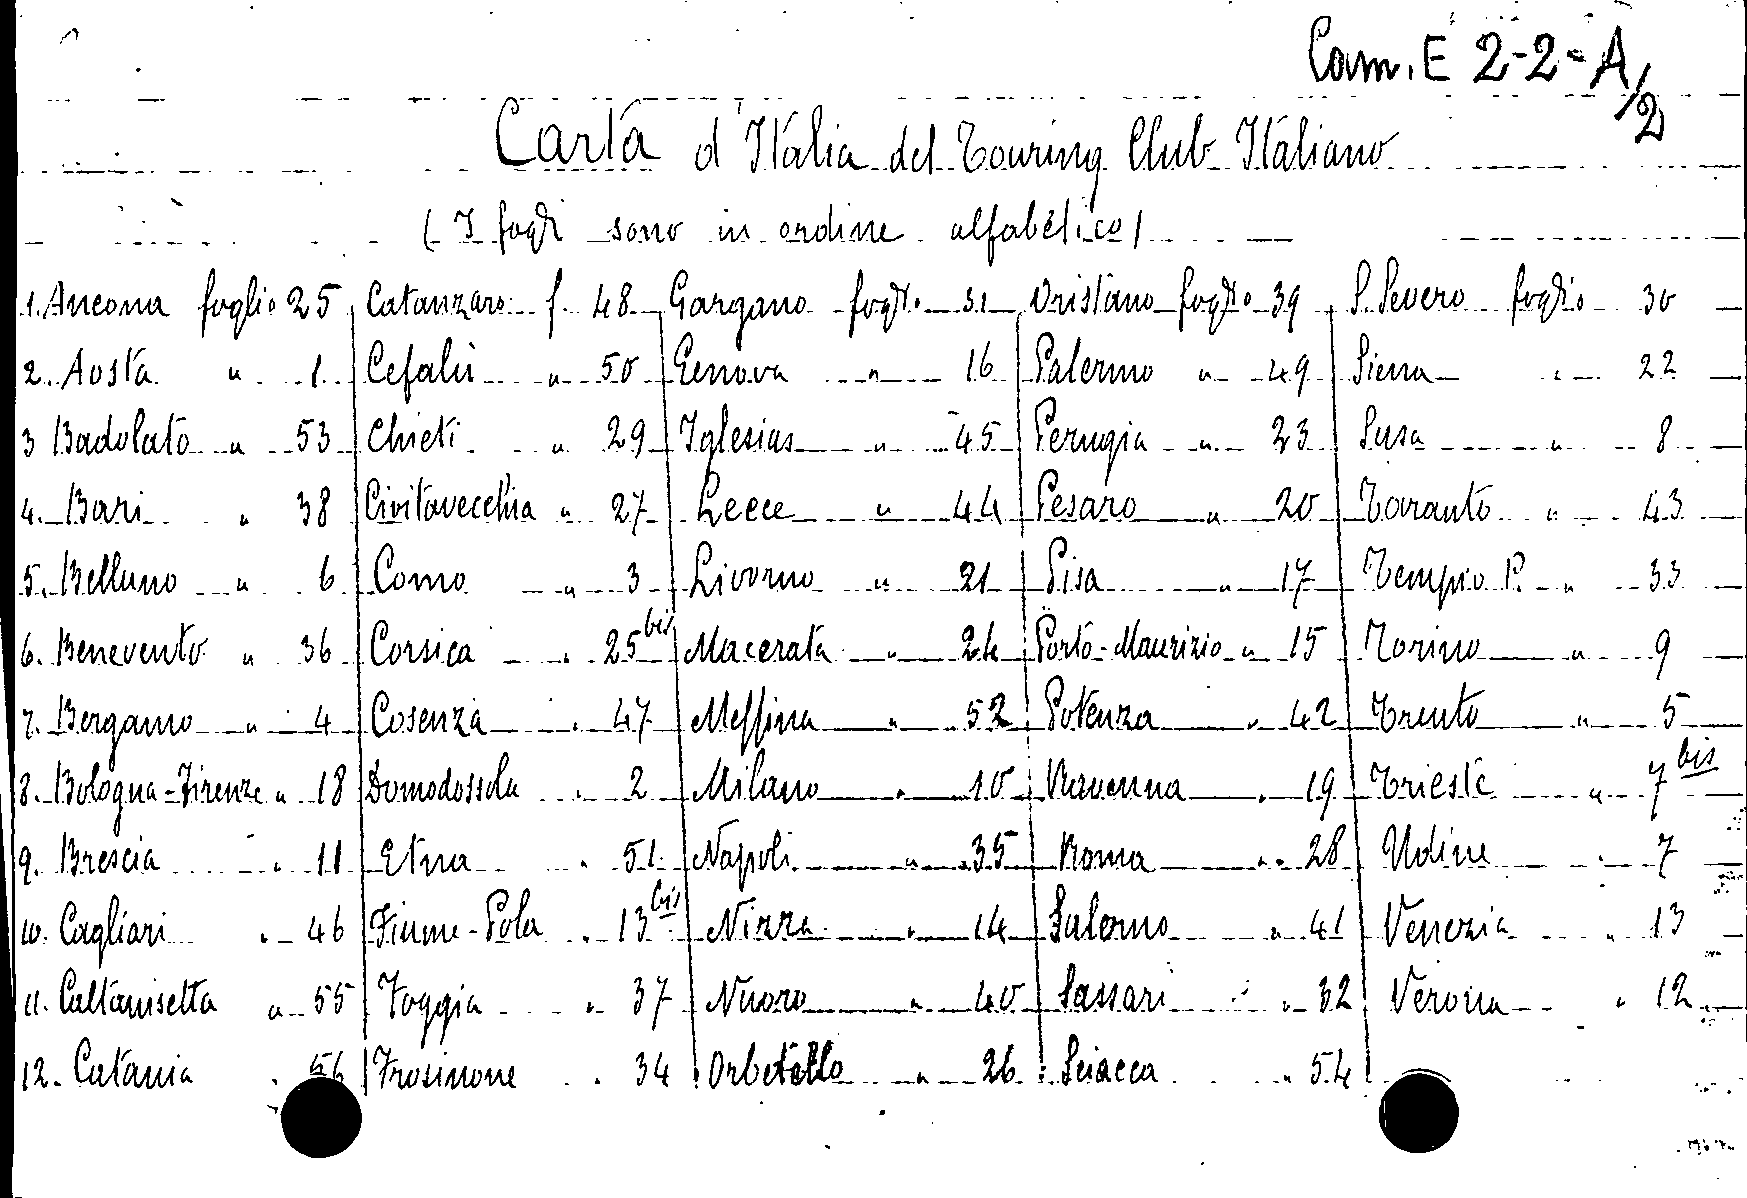 Cam. E 2-2-A/2
Carta d'Italia del Touring Club Italiano
( I fogli sono in ordine alfabetico )
1. Ancona foglio 25 Catanzaro f. 48 Gargano foglio 31 Oristano foglio 39 S. Severo foglio 30
2. Aosta " 1 Cefalù " 50 Genova " 16 Palermo " 49 Siena " 22
3 Badolato " 53 Chieti " 29 Iglesias " 45 Perugia " 23 Susa " 8
4. Bari " 38 Civitavecchia " 27 Lecce " 44 Pesaro " 20 Taranto " 43
5. Belluno " 6 Como " 3 Livorno " 21 Pisa " 17 Tempio P. " 33
6. Benevento " 36 Corsica " 25 bis Macerata " 24 Porto-Maurizio " 15 Torino " 9
7. Bergamo " 4 Cosenza " 47 Messina " 52 Potenza " 42 Trento " 5
8. Bologna-Firenze " 18 Domodossola " 2 Milano " 10 Ravenna " 19 Trieste " 7 bis
9. Brescia " 11 Etna " 51 Napoli " 35 Roma " 28 Udine " 7
10. Cagliari " 46 Fiume-Pola " 13 bis Nizza " 14 Salerno " 41 Venezia " 13
11. Caltanisetta " 55 Foggia " 37 Nuoro " 40 Sassari " 32 Verona " 12
12. Catania " 56 Frosinone " 34 Orbetello " 26 Sciacca " 54